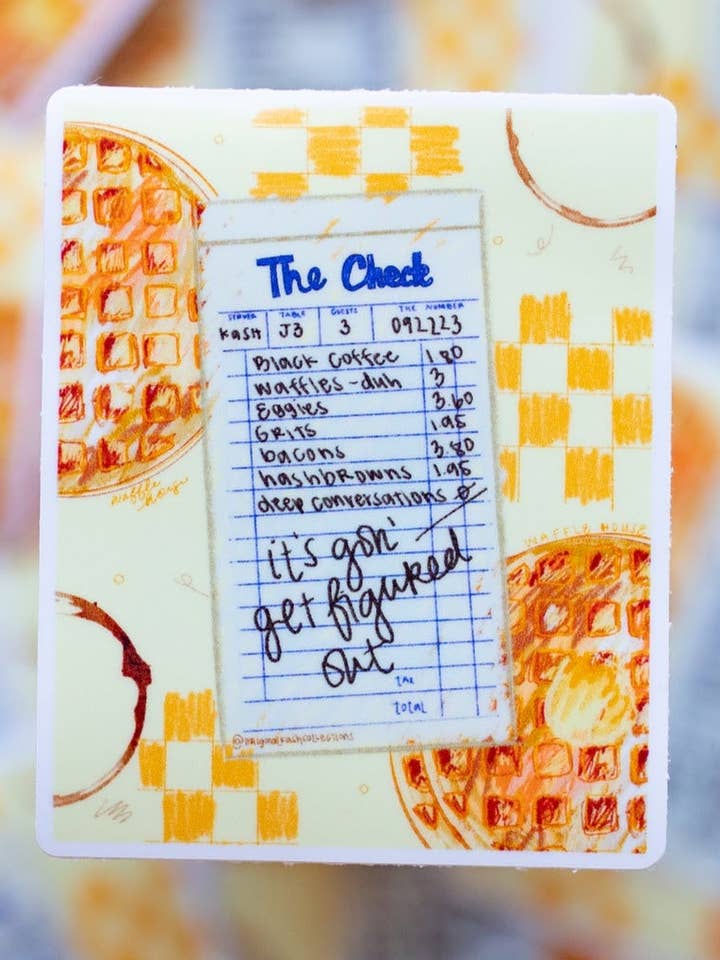 The Check
SERVER TABLE GUESTS THE NUMBER
KASH J3 3 092223
Black Coffee 1.80
Waffles - duh 3
Eggies 3.60
GRITS 1.95
bacons 3.80
hashbrowns 1.95
deep conversations 0
it's gon'
get figured
out
tax
total
waffle
house
WAFFLE HOUSE